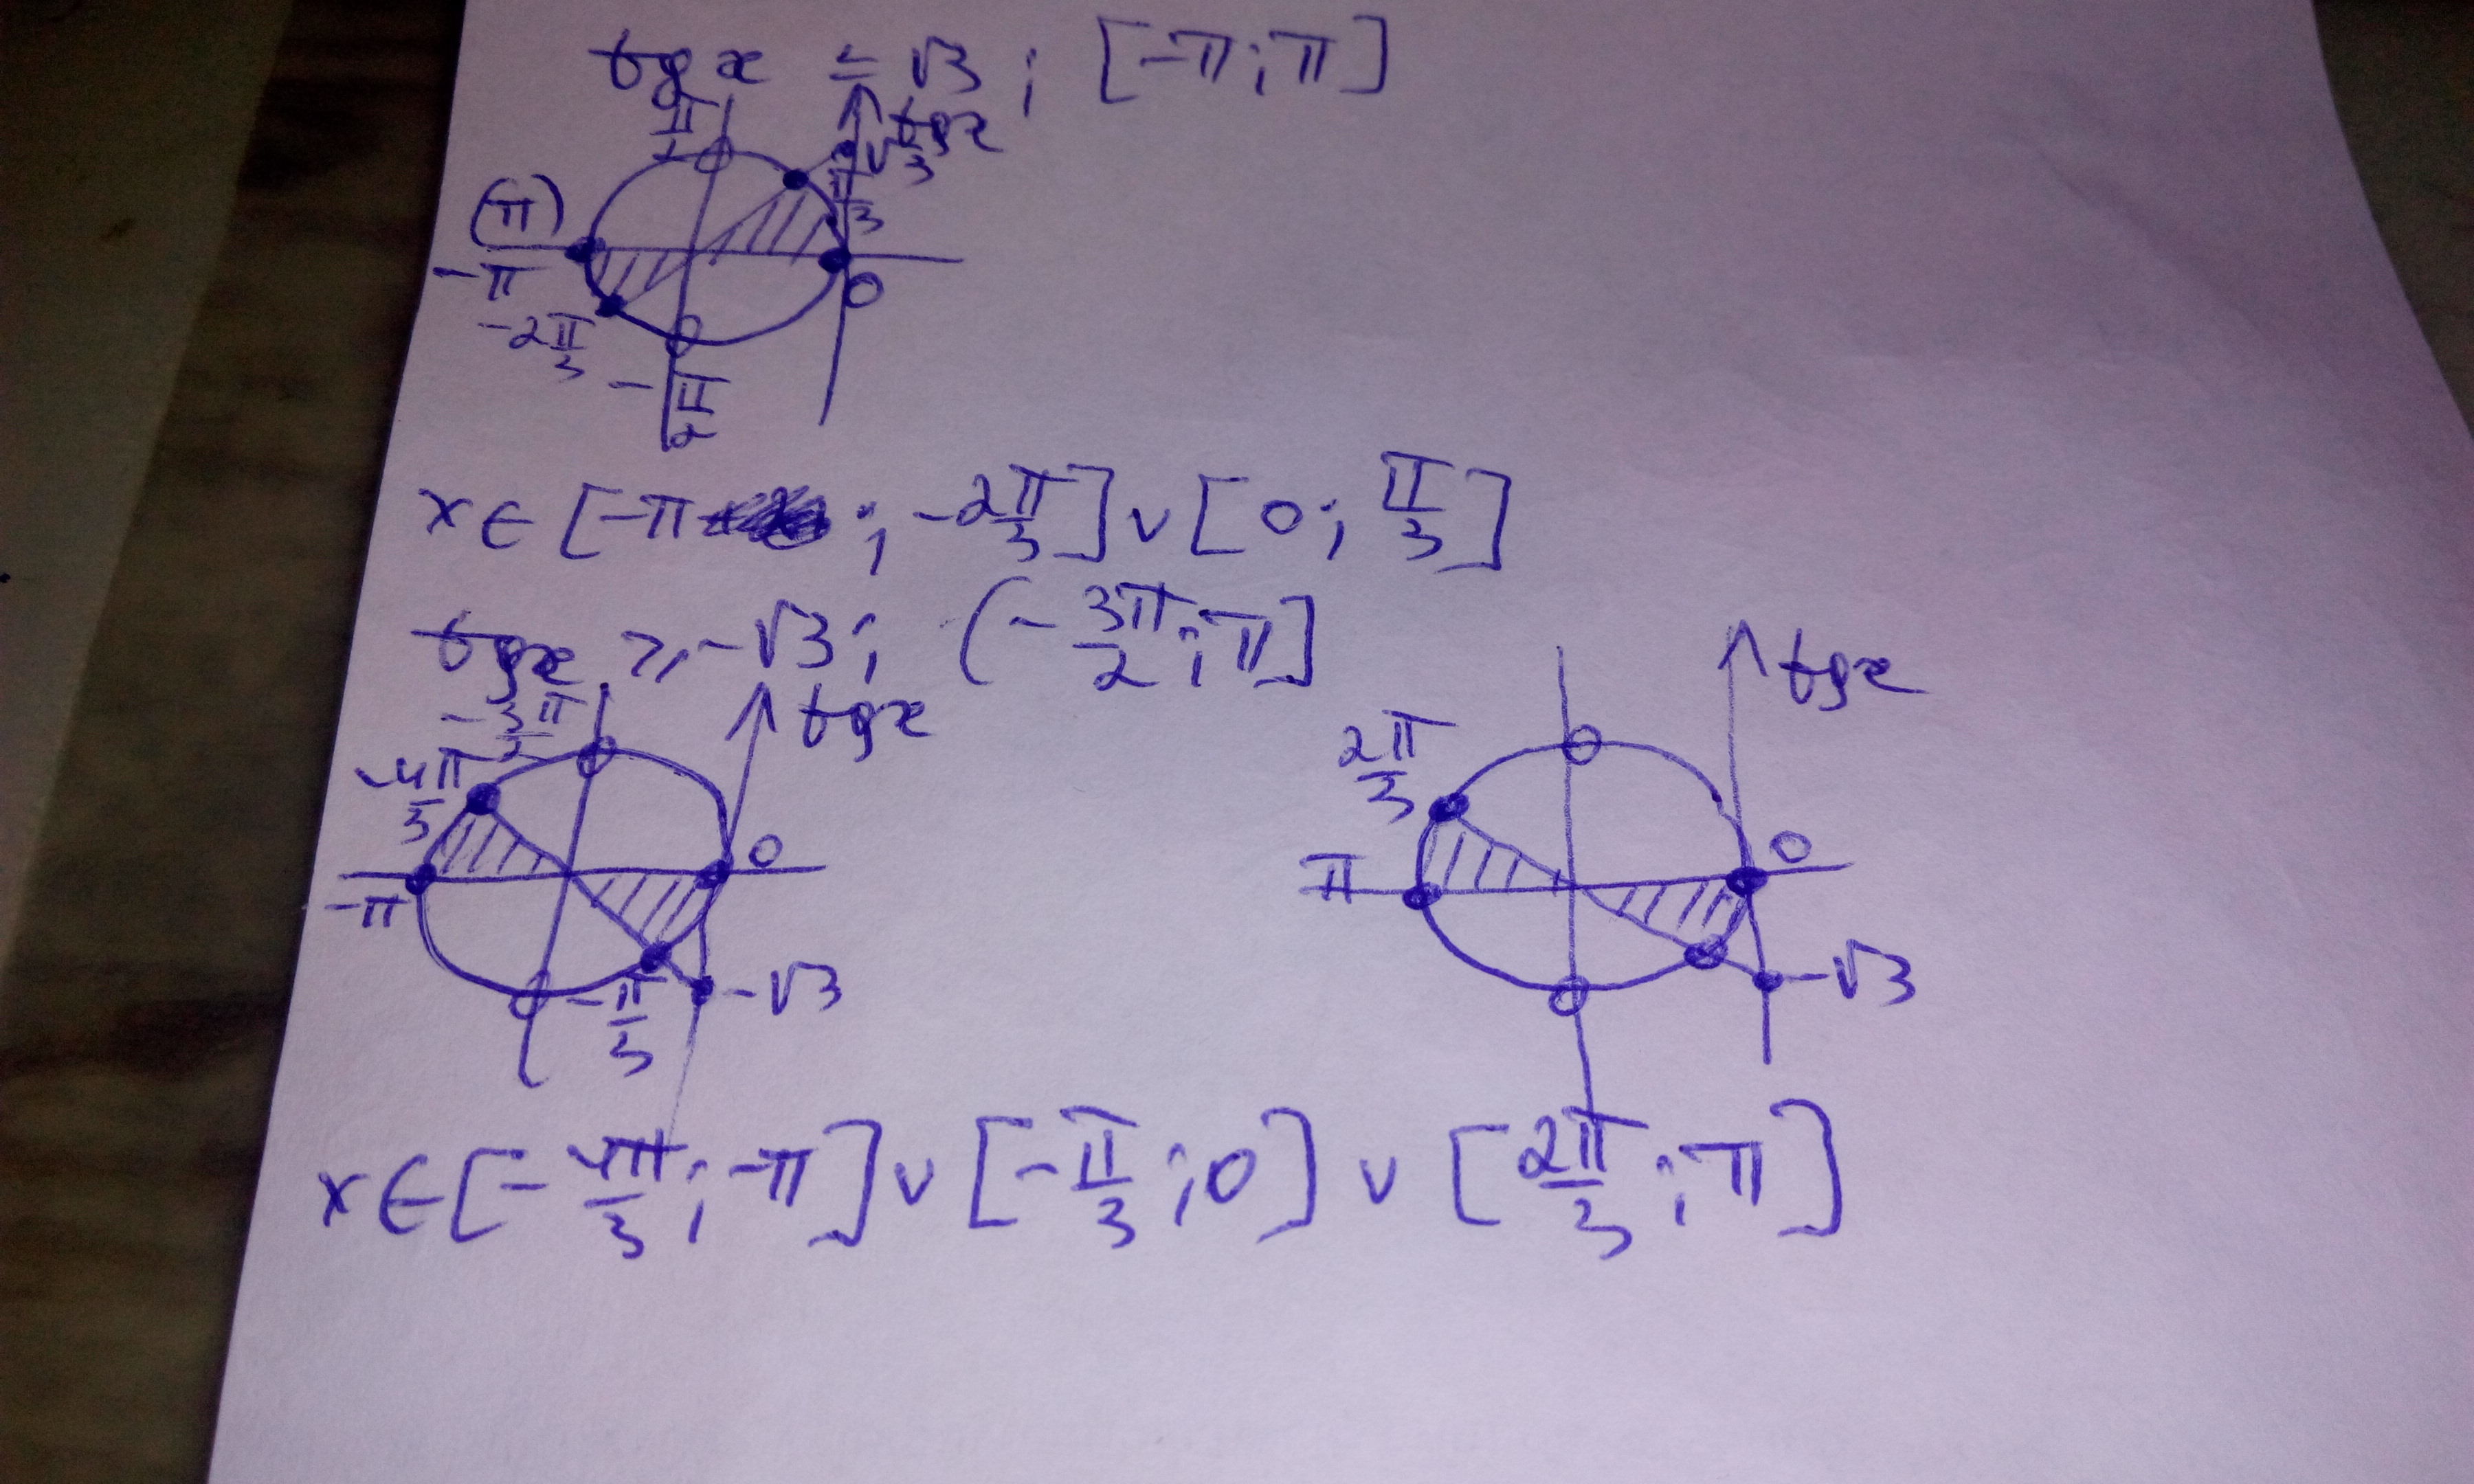 tgx ≤ √3; [-π; π]
π/2
tgx
√3
π/3
(π)
-π
0
-2π/3
-π/2
x ∈ [-π ; -2π/3] ∨ [0; π/3]
tgx ≥ -√3; (-3π/2; π]
-3π/2
tgx
-4π/3
0
-π
-π/3
-√3
tgx
2π/3
0
π
-√3
x ∈ [-4π/3; -π] ∨ [-π/3; 0] ∨ [2π/3; π]